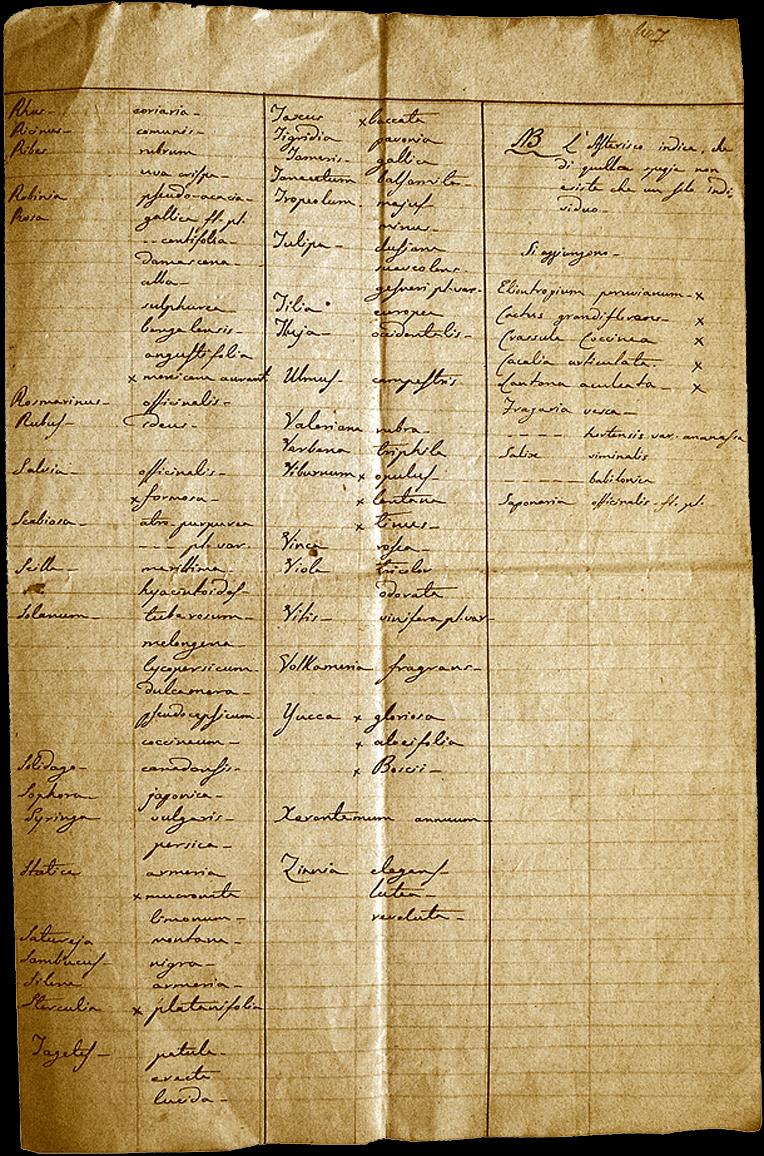 Rhus - coriaria -
Ricinus - comunis -
Ribes rubrum
uva crispa -
Robinia pseudo-acacia -
Rosa gallica fl. pl.
- - centifolia -
damascena -
alba -
sulphurea
bengalensis -
angustifolia
x mexicana aurant.
Rosmarinus - officinalis -
Rubus - ideus -
Salvia - officinalis -
x formosa -
Scabiosa - atro-purpurea
- - - pl. var.
Scilla - marittima -
hyacintoides -
Solanum - tuberosum -
melongena -
lycopersicum -
dulcamara -
pseudocapsicum -
coccineum -
Solidago - canadensis -
Sophora japonica -
Syringa vulgaris -
persica -
Statice armeria
x mucronata
limonum -
Satureja montana -
Sambucus - nigra -
Silene armeria -
Sterculia x platanifolia
Tagetes - patula -
erecta
lucida -
Taxus x baccata
Tigridia pavonia
Tameris - gallica
Tanacetum balsamita -
Tropeolum - majus -
minus -
Tulipa - clusiana
suaveolens -
gesneri pl. var -
Tilia europea
Thuja - occidentalis -
Ulmus - campestris
Valeriana rubra -
Verbena triphila
Viburnum x opulus -
x lantana
x tinus -
Vinca rosea -
Viola tricolor
odorata
Vitis - vinifera pl. var -
Volkameria fragrans -
Yucca x gloriosa
x aloifolia
x Boscii -
Xerantemum annuum -
Zinnia elegans -
lutea -
revoluta -
NB L'Asterisco indica, che
di quella non
esiste che un solo indi-
viduo -
Si aggiungono -
Eliontropium peruvianum - x
Cactus grandiflorus - x
Crassula Coccinea x
Cacalia articulata. x
Lantana aculeata - x
Fragaria vesca -
- - - - hortensis var. ananassa
Salix viminalis
- - - - - babilonica
Saponaria officinalis - fl. pl.